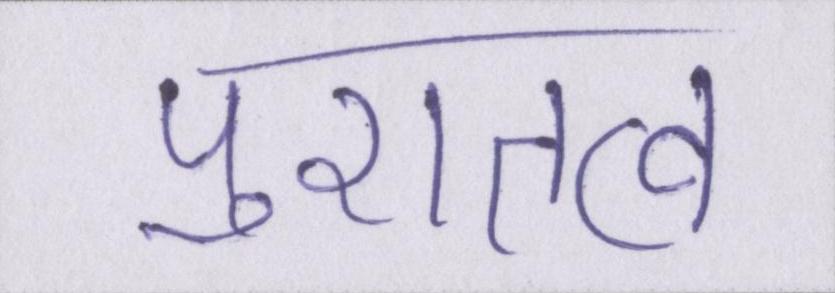 पुरातत्व